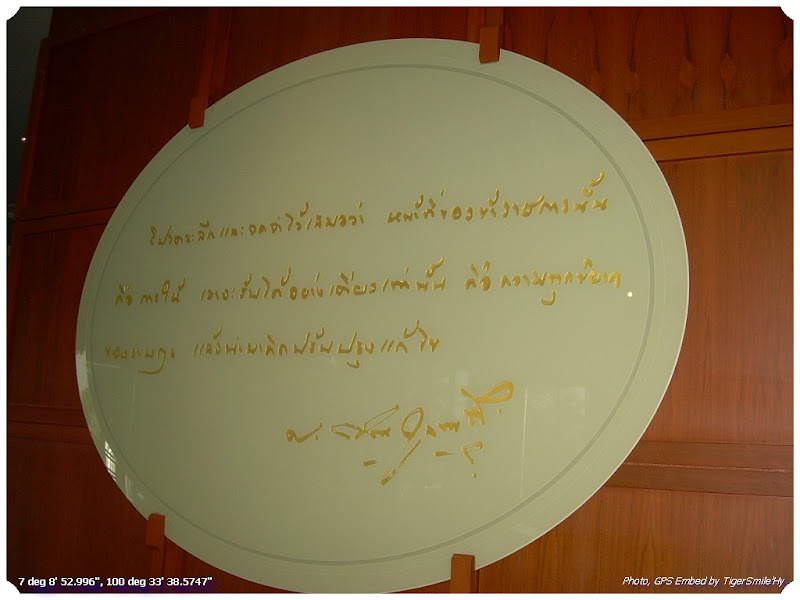 โปรดระลึกและจดจำไว้เสมอว่า หน้าที่ของข้าราชการนั้น
คือ การให้ เราจะรับได้อย่างเดียวเท่านั้น คือ ความทุกข์ยาก
ของราษฎร แล้วนำมาคิดปรับปรุงแก้ไข
7 deg 8' 52.996", 100 deg 33' 38.5747"
Photo, GPS Embed by TigerSmile'Hy